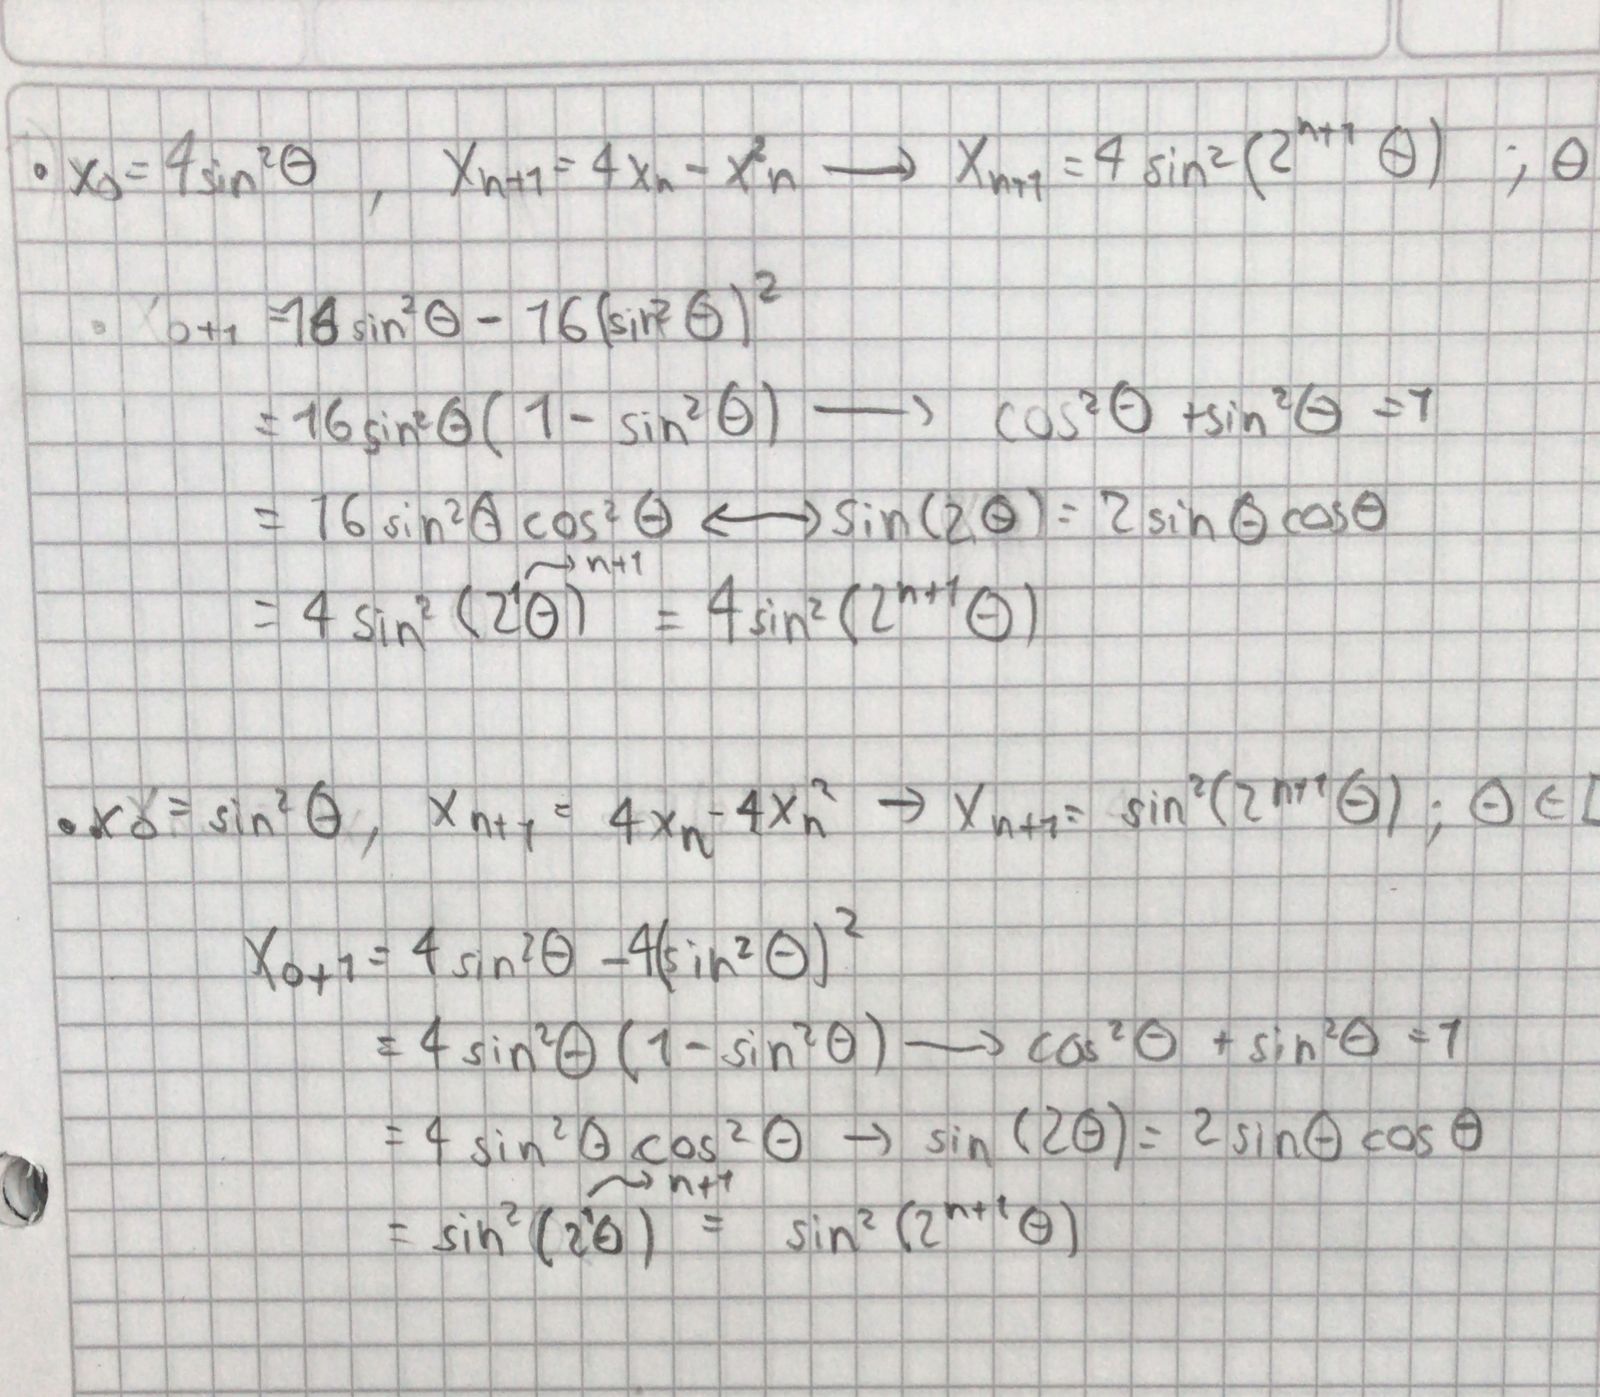 • x₀ = 4 sin²θ , xₙ₊₁ = 4xₙ - x²ₙ → xₙ₊₁ = 4 sin²(2ⁿ⁺¹ θ) ; θ
• x₀₊₁ = 16 sin²θ - 16(sin²θ)²
= 16 sin²θ(1 - sin²θ) → cos²θ + sin²θ = 1
= 16 sin²θ cos²θ ↔ sin(2θ) = 2 sin θ cos θ
→ n+1
= 4 sin²(2¹θ) = 4 sin²(2ⁿ⁺¹θ)
• x₀ = sin²θ, xₙ₊₁ = 4xₙ - 4xₙ² → xₙ₊₁ = sin²(2ⁿ⁺¹θ) ; θ ∈ [
x₀₊₁ = 4 sin²θ - 4(sin²θ)²
= 4 sin²θ (1 - sin²θ) → cos²θ + sin²θ = 1
= 4 sin²θ cos²θ → sin (2θ) = 2 sin θ cos θ
→ n+1
= sin²(2¹θ) = sin²(2ⁿ⁺¹θ)